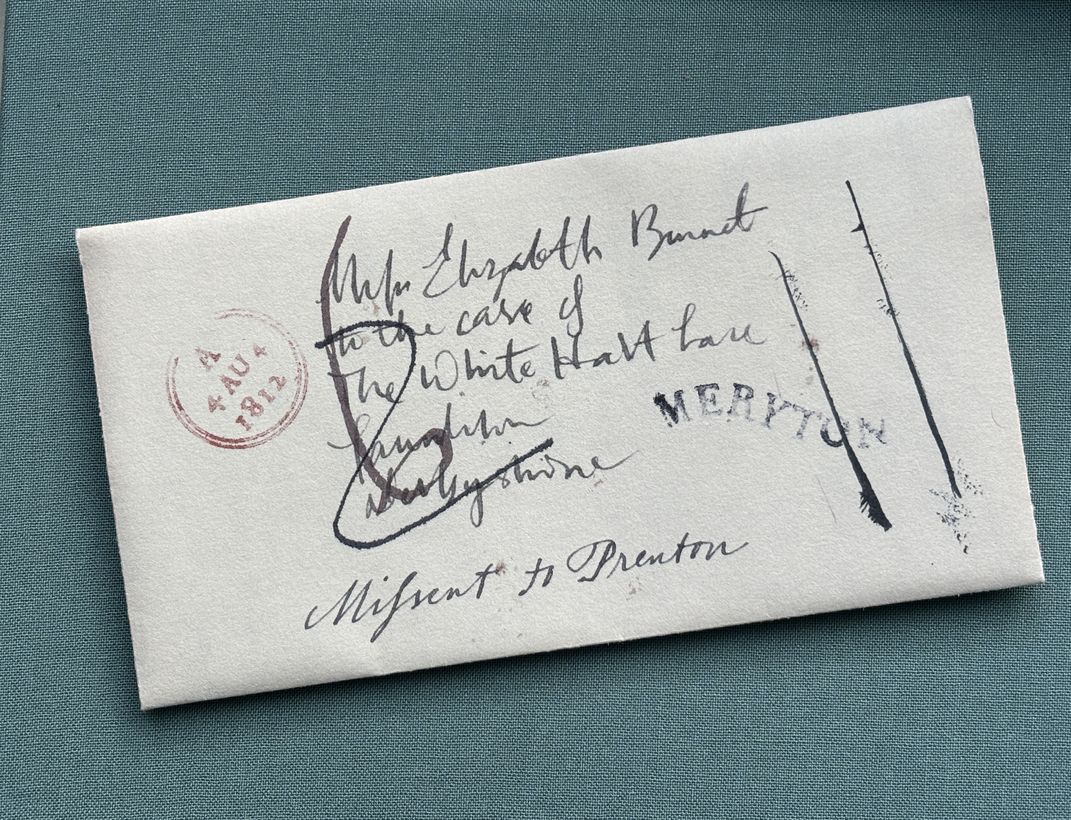 Miſs Elizabeth Bennet
to the care of
The White Hart Lane
Lambton
Derbyshire
Miſsent to Prenton
A
4 AU 4
1812
MERYTON